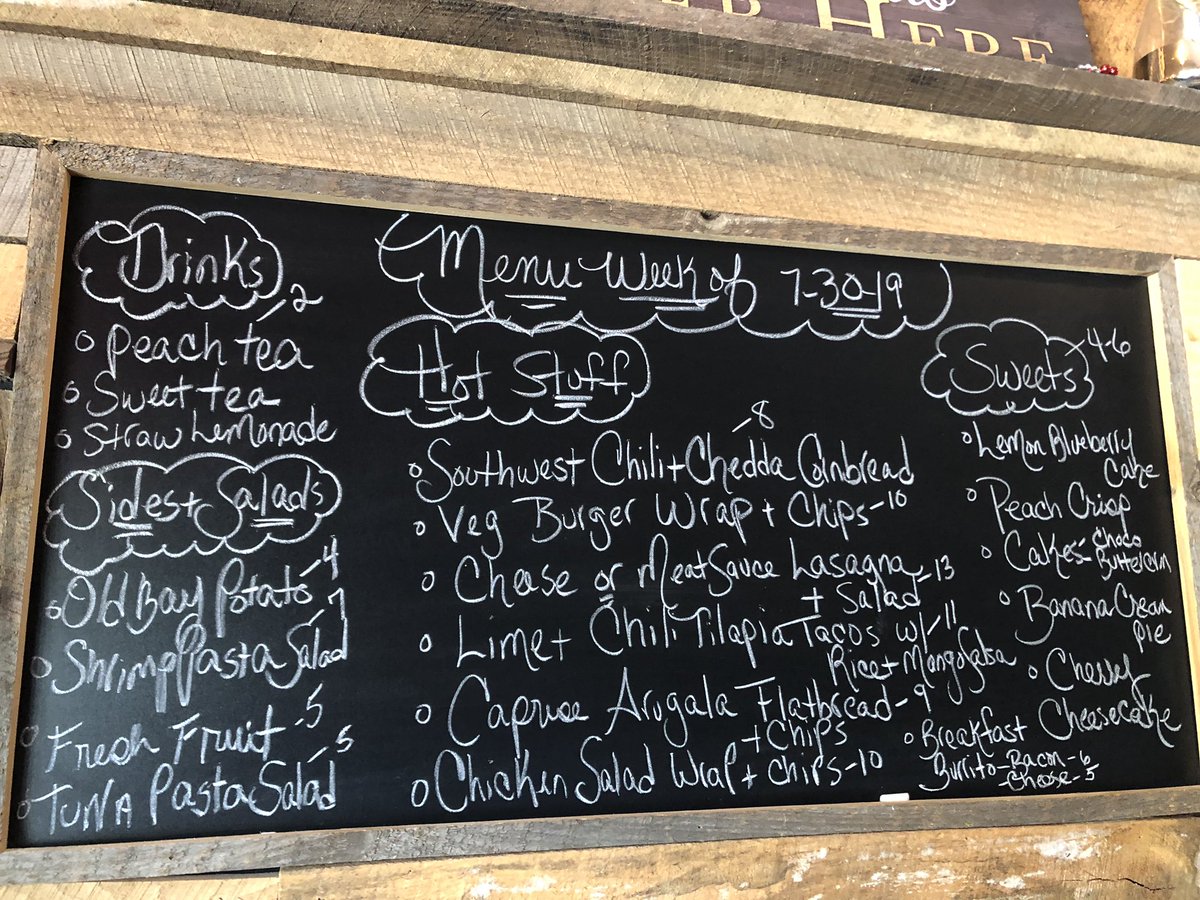 HERE
Menu Week of 7-30-19
Drinks -2
Peach tea
Sweet tea
Straw Lemonade
Sides + Salads
Old Bay Potato -4
Shrimp Pasta Salad -7
Fresh Fruit -5
Tuna Pasta Salad -5
Hot Stuff
Southwest Chili + Chedda Cornbread -8
Veg Burger Wrap + Chips -10
Cheese or Meat Sauce Lasagna
+ Salad -13
Lime + Chili Tilapia Tacos w/ -11
Rice + Mango Salsa
Caprese Arugala Flatbread -9
+ Chips
Chicken Salad Wrap + Chips -10
Sweets -4-6
Lemon Blueberry
Cake
Peach Crisp
Cakes - Choco
Buttercrm
Banana Cream
pie
Cherry
Cheesecake
Breakfast
Burrito - Bacon -6
- Cheese -5